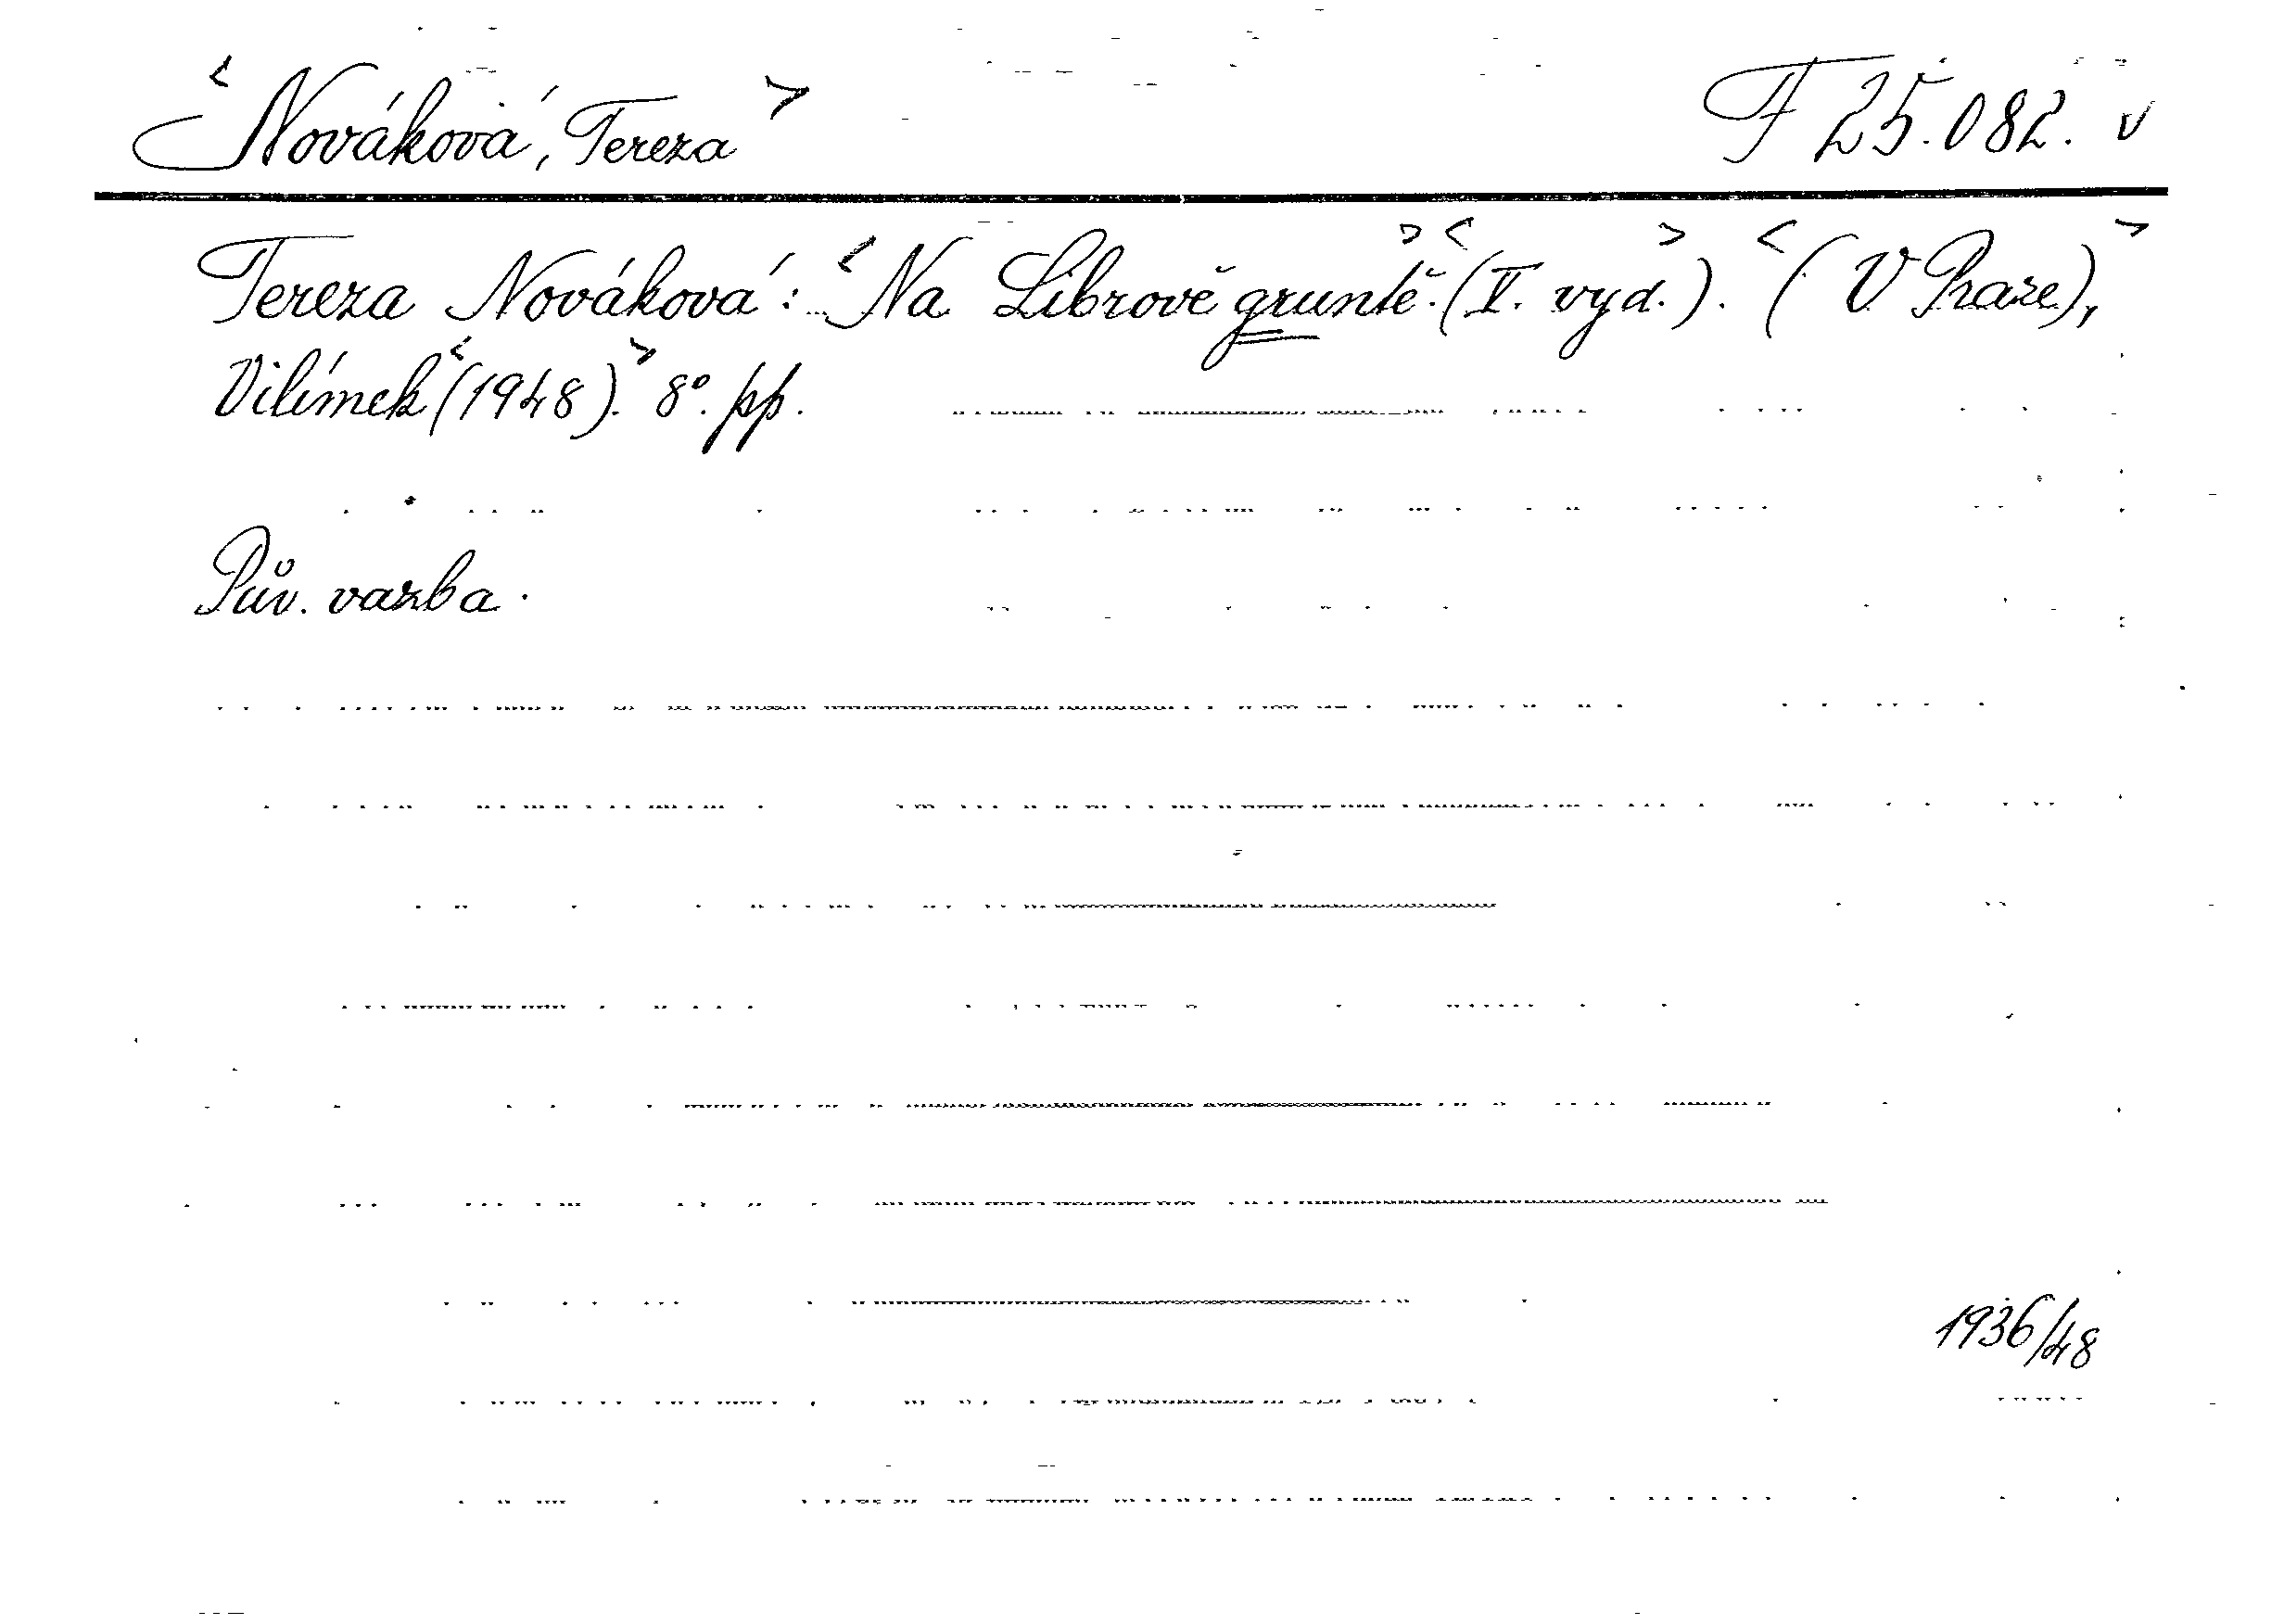 <Nováková, Tereza> F 25.082. v
Tereza Nováková: <Na Librově gruntě.> <(V. vyd.)>. <(V Praze),>
Vilímek <(1948).> 8°. pp.
Pův. vazba.
1936/48